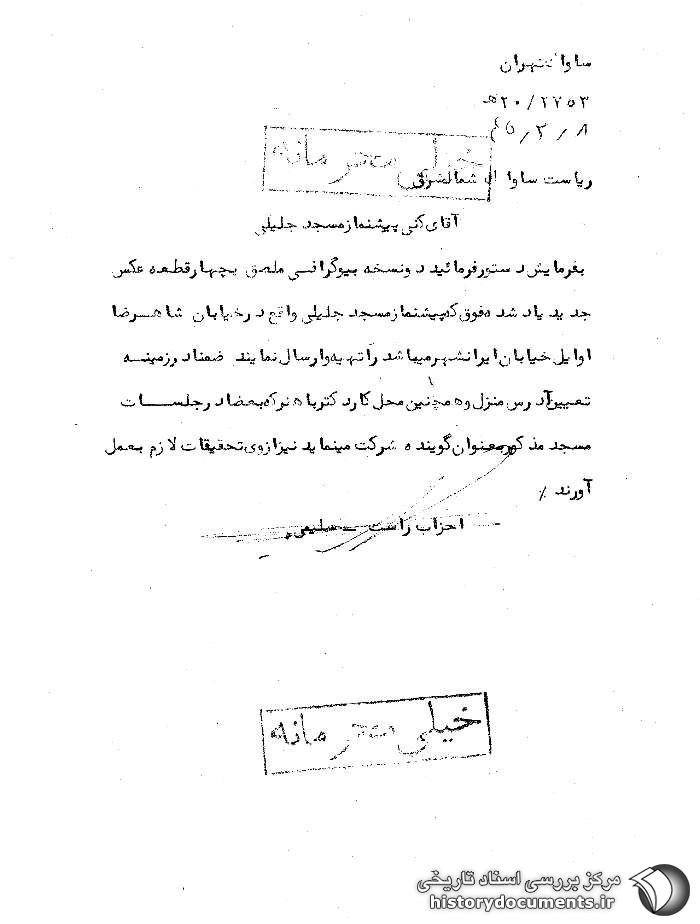 ساواک تهران
۲۰/۲۷۵۳ ه
۴۵/۳/۸
خیلی محرمانه
ریاست ساواک شمالشرق
آقای کنی پیشنماز مسجد جلیلی
بفرمایش دستور فرمائید دو نسخه بیوگرافی ملصق بچهار قطعه عکس
جدید یاد شده فوق که پیشنماز مسجد جلیلی واقع در خیابان شاهرضا
اوایل خیابان ایرانشهر میباشد را تهیه و ارسال نمایند ضمنا در زمینه
تعیین آدرس منزل و همچنین محل کار دکتر باهنر که بعضا در جلسات
مسجد مذکور بعنوان گوینده شرکت مینماید نیز ازوی تحقیقات لازم بعمل
آورند /
احزاب راست – سلیمی
خیلی محرمانه
مرکز بررسی اسناد تاریخی
historydocuments.ir